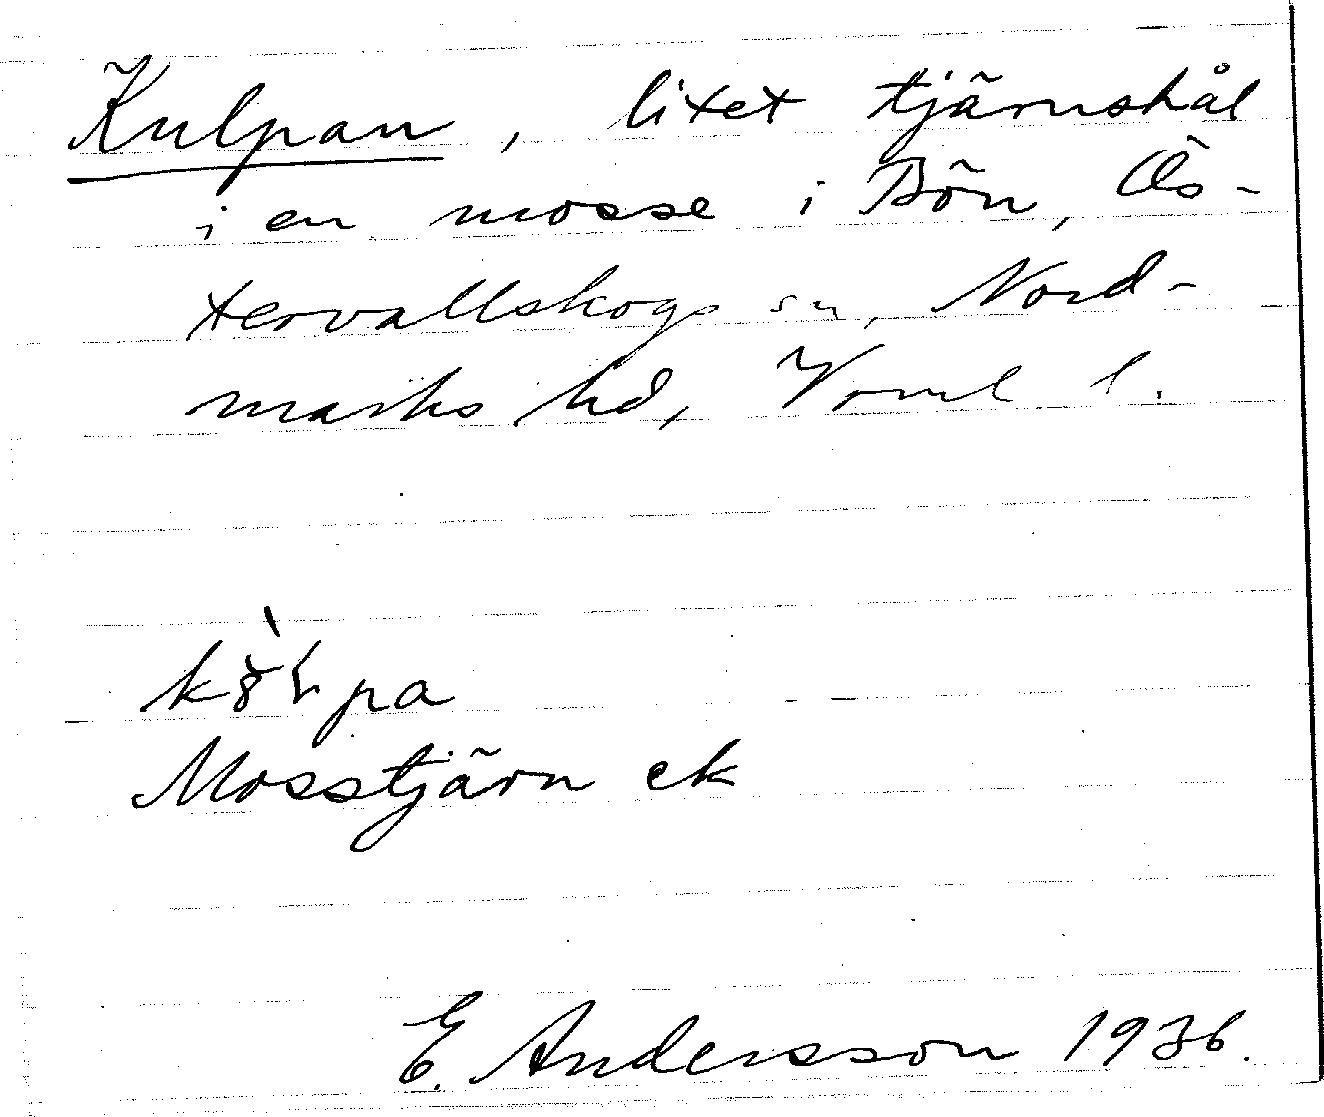 Kulpan, litet tjärnshål
i en mosse i Bön, Ös-
tervallskogs sn, Nord-
marks hd, Verml l.
Mosstjärn ek
E. Andersson 1936.